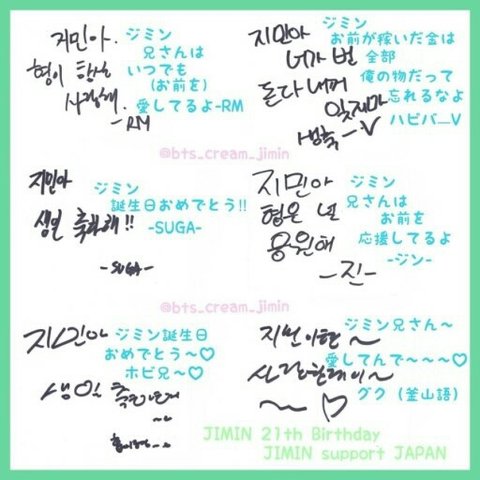 지민아.
형이 항상
사랑해.
-RM
ジミン
兄さんは
いつでも
(お前を)
愛してるよ-RM
지민아
너가 번
돈 다 내꺼
잊지마
생축 -V
ジミン
お前が稼いだ金は
全部
俺の物だって
忘れるなよ
ハピバ…V
@bts_cream_jimin
지민아
생일 축하해!!
-SUGA-
ジミン
誕生日おめでとう!!
-SUGA-
지민아
형은 널
응원해
-진-
ジミン
兄さんは
お前を
応援してるよ
-ジン-
@bts_cream_jimin
지민아
생일
ジミン誕生日
おめでとう〜♡
ホビ兄〜♡
지민이형~
~♡
ジミン兄さん〜
愛してんで〜〜〜♡
グク（釜山語）
JIMIN 21th Birthday
JIMIN support JAPAN